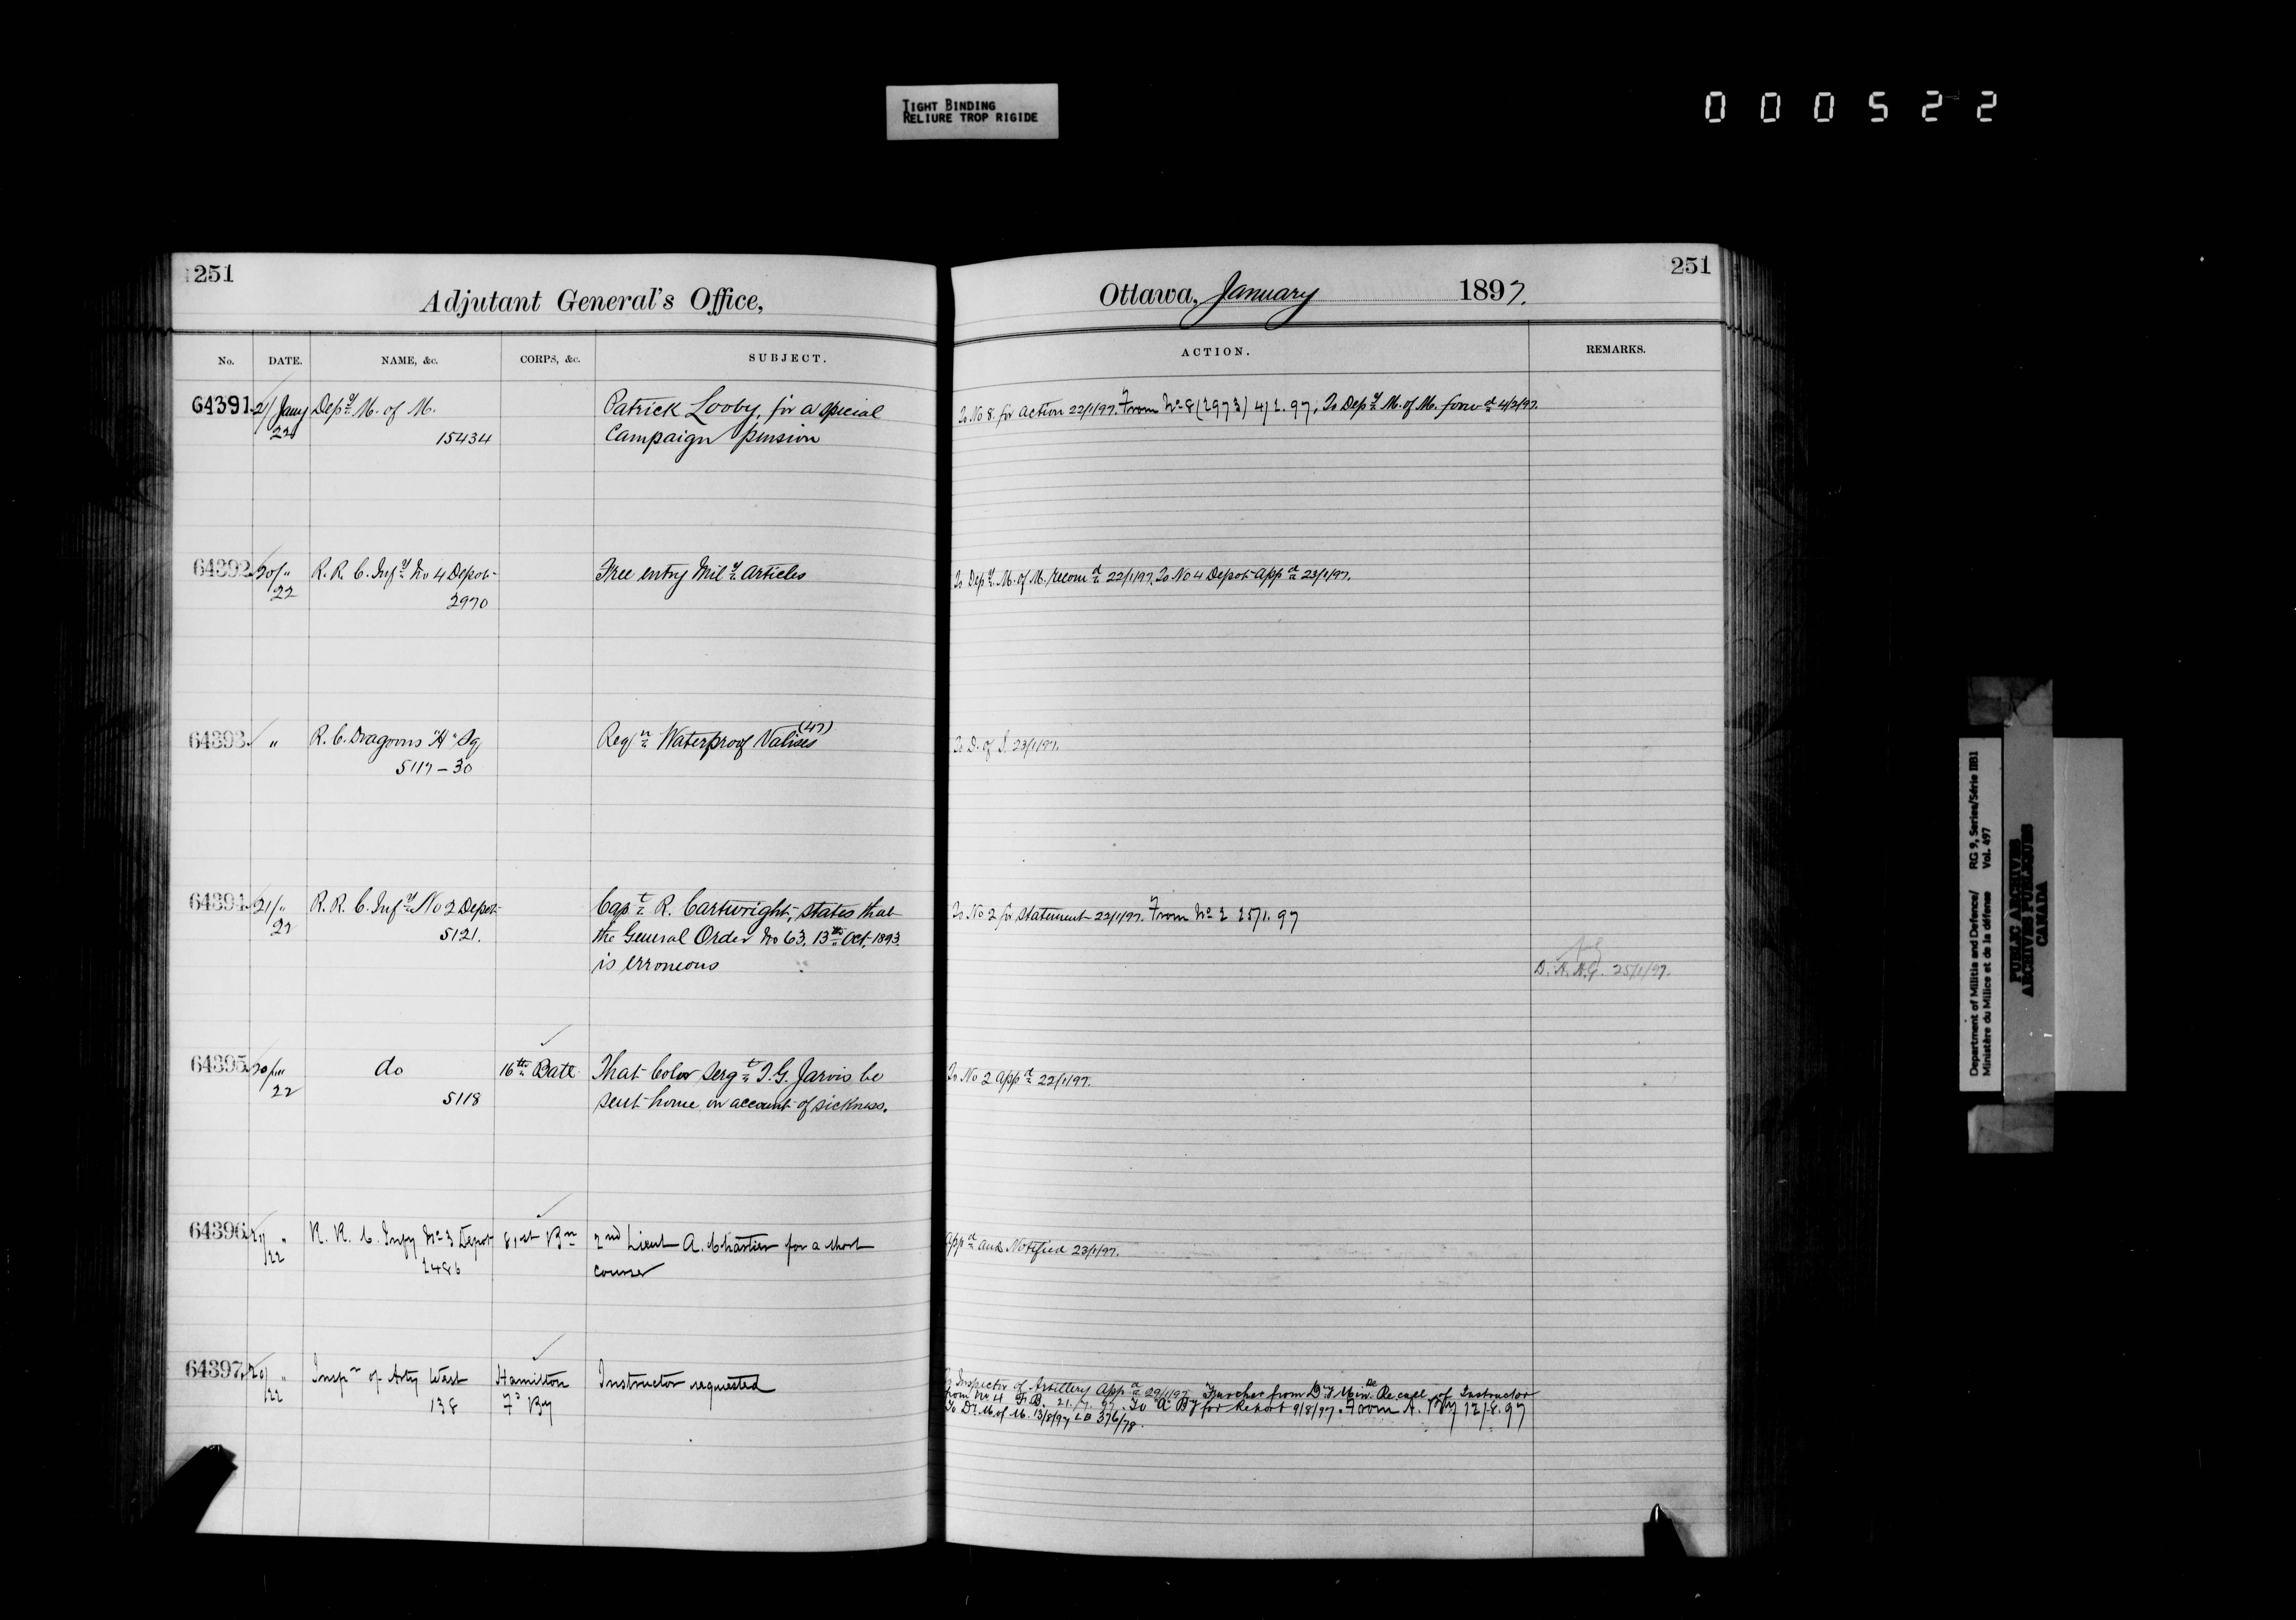 TIGHT BINDING
RELIURE TROP RIGIDE
000522
251
Adjutant General's Office,
Ottawa, January 1897.
251
No. DATE. NAME, &c. CORPS, &c. SUBJECT. ACTION. REMARKS.
64391. 21/ Jany Depy. M. of M. Patrick Looby, for a special To No 8 for action 22/1/97. From No 8 (2973) 4/2.97; To Depy. M. of M. forwd 4/2/97.
22 15434 Campaign pension
64392. 20/ " R. R. C. Infy No 4 Depot Free entry Mily. Articles To Depy. M. of M. recomd 22/1/97. To No 4 Depot Appd 23/1/97.
22 2970
64393. " R. C. Dragoons "A" Sq Reqn Waterproof Valises (47) To D. of S. 23/1/97.
5117 – 30
64394. 21/ " R. R. C. Infy No 2 Depot Capt R. Cartwright, states that To No 2 for statement 22/1/97. From No 2 25/1.97
22 5121. the General Order No 63, 13th Oct. 1893
is erroneous D. A. A.G. 25/1/97.
64395. 20/ " do 16th Batt. That Color Sergt T. G. Jarvis be To No 2 appd 22/1/97.
22 5118 sent home on account of sickness.
64396. 21/ " R. R. C. Infy No 3 Depot 81st Bn 2nd Lieut A. Chartier for a short Appd and Notified 23/1/97.
22 2486 course
64397. 20/ " Inspr of Arty West Hamilton Instructor requested To Inspector of Artillery Appd 29/1/97. Further from Dy Minr Re case of Instructor
22 138 Fd By from No 4 F. B. 21.7.97. To "A" By for Report 9/8/97. From A. By 12/8.97
To Dy. M. of M. 13/8/97 LB 376/78.
Department of Militia and Defence/ RG 9, Series/Série IIB1
Ministère du Milice et de la défense Vol. 497
PUBLIC ARCHIVES
ARCHIVES PUBLIQUES
CANADA